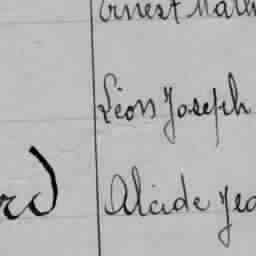 Ernest Math
Léon Joseph
rd Alcide Jea